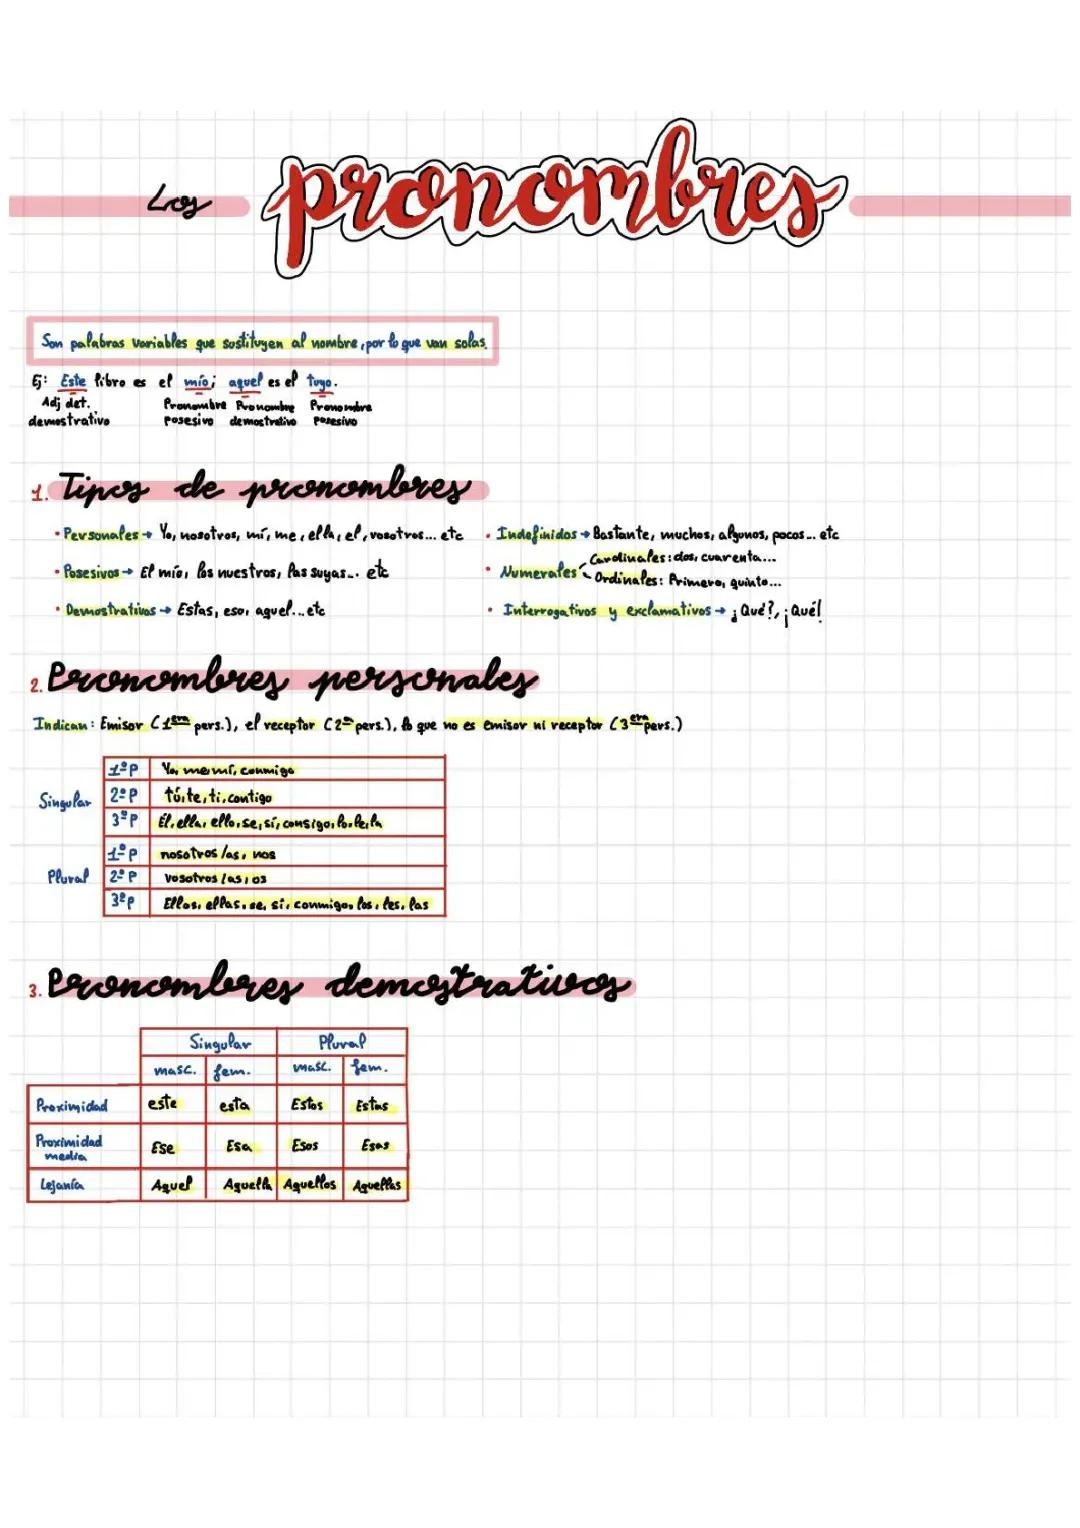 Los pronombres
Son palabras variables que sustituyen al nombre, por lo que van solas.
Ej: Este libro es el mío; aquel es el tuyo.
Adj det. Pronombre Pronombre Pronombre
demostrativo posesivo demostrativo posesivo
1. Tipos de pronombres
• Personales → Yo, nosotros, mí, me, ella, el, vosotros... etc
• Indefinidos → Bastante, muchos, algunos, pocos... etc
• Posesivos → El mío, los nuestros, las suyas... etc
• Numerales
Cardinales: dos, cuarenta...
Ordinales: Primero, quinto...
• Demostrativos → Estas, eso, aquel... etc
• Interrogativos y exclamativos → ¿Qué?, ¡Qué!
2. Pronombres personales
Indican: Emisor (1era pers.), el receptor (2ª pers.), lo que no es emisor ni receptor (3era pers.)
Singular
1ªP Yo, me, mí, conmigo
2ªP tú, te, ti, contigo
3ªP El, ella, ello, se, sí, consigo, lo, le, la
Plural
1ªP nosotros/as, nos
2ªP vosotros/as, os
3ªP Ellos, ellas, se, sí, conmigo, los, les, las
3. Pronombres demostrativos
Singular Plural
masc. fem. masc. fem.
Proximidad este esta Estos Estas
Proximidad media Ese Esa Esos Esas
Lejanía Aquel Aquella Aquellos Aquellas